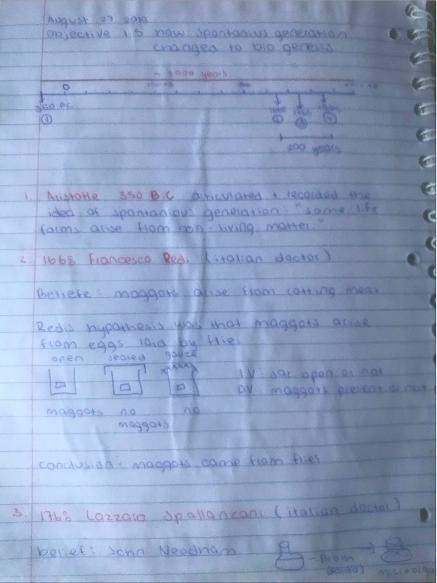 August 27 2010
Objective is how spontanius generation
changed to bio genesis
~ 2000 years
0
350 BC
①
200 years
1. Aristotle 350 B.C articulated + recorded the
idea of spontanious generation: "some life
forms arise from non-living matter."
2. 1668 Francesco Redi (italian doctor)
Beliefe: maggots arise from rotting meat
Redis hypothesis was that maggots arise
from eggs laid by flies
open sealed gauze
IV: jar open or not
DV: maggots present or not
maggots no no
maggots
conclusion: maggots came from flies
3. 1768 Lazzaro Spallanzani (italian doctor)
belief: John Needham